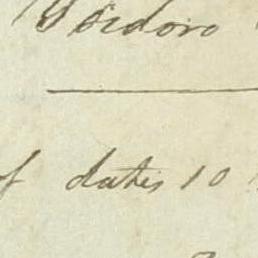 Isidoro
of dates 10